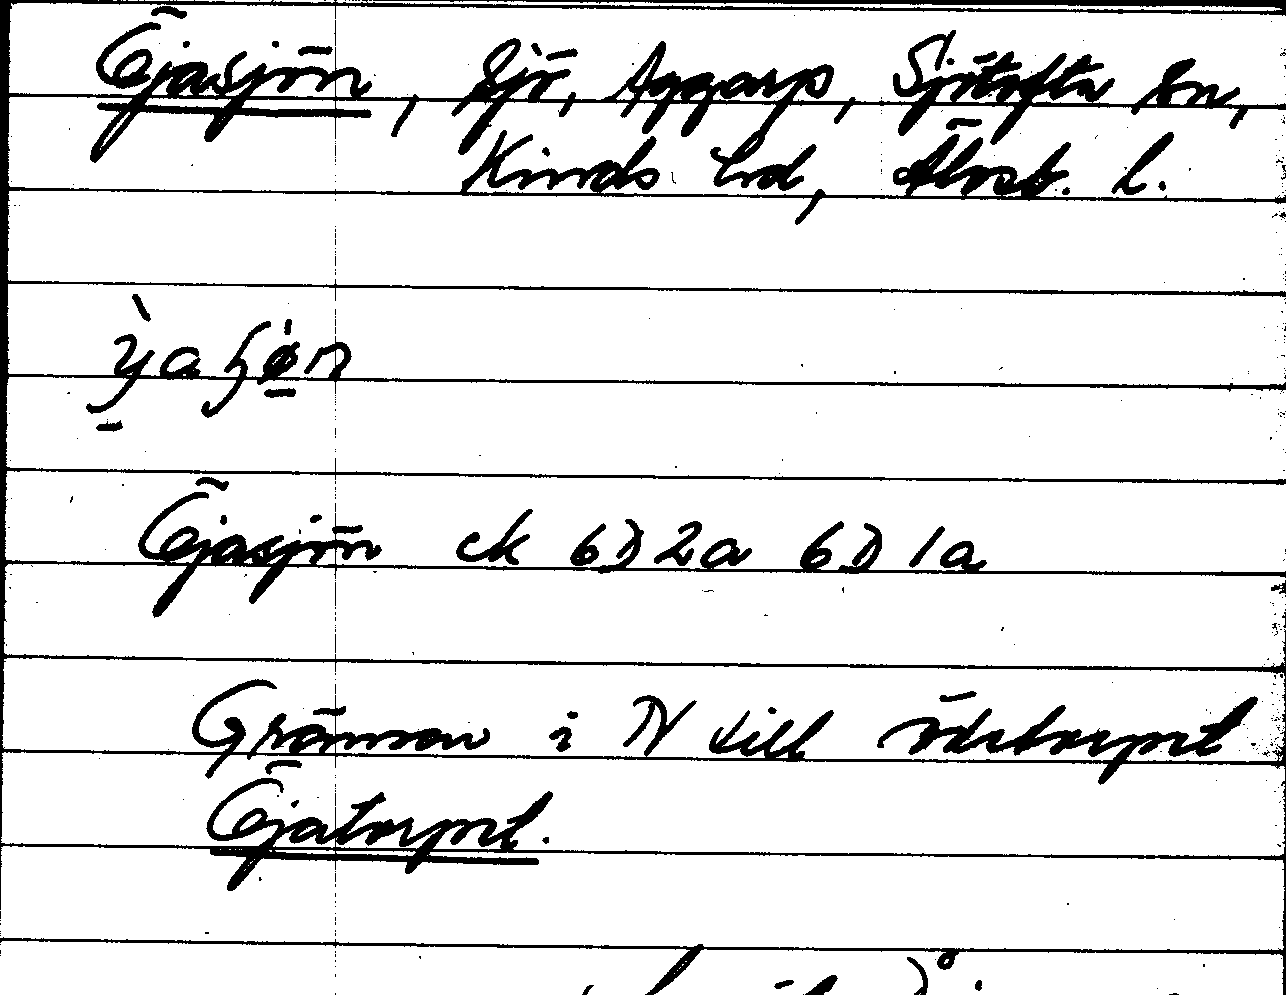 Öjasjön, sjö, Aggarp, Sjötofta sn,
Kinds hd, Älvsb. l.
Öjasjön ek 6D2a 6D1a
Gränsar i N till ödetorpet
Öjatorpet.